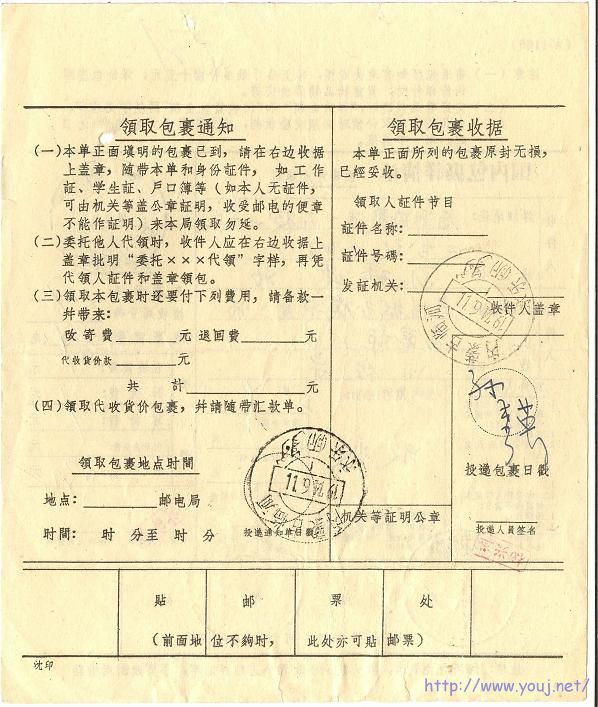 領取包裹通知
(一)本单正面填明的包裹已到，請在右边收据
上盖章，随带本单和身份証件， 如工作
証、学生証、戶口簿等（如本人无証件，
可由机关等盖公章証明，收受邮电的便章
不能作証明）来本局領取勿延。
(二)委托他人代領时，收件人应在右边收据上
盖章批明“委托×××代領”字样，再凭
代領人証件和盖章領包。
(三)領取本包裹时还要付下列費用，請备款一
幷带来：
收寄費______元 退回費______元
代收貨价款______元
共 計______元
(四)領取代收貨价包裹，幷請随带汇款单。
領取包裹地点时間
地点：______邮电局
时間： 时 分至 时 分
投递通知单日戳
領取包裹收据
本单正面所列的包裹原封无損，
已經妥收。
領取人証件节目
証件名称：______
証件号碼：______
发証机关：______
收件人盖章
内蒙古临河
1974.6.11
投递包裹日戳
机关等証明公章
投递人員签名
1974.6.11
貼 邮 票 处
（前面地位不夠时， 此处亦可貼邮票）
沈印
http://www.youj.net/